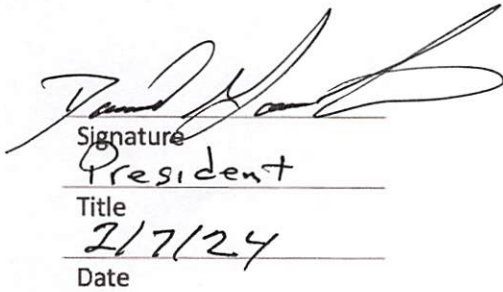 Signature
President
Title
2/7/24
Date